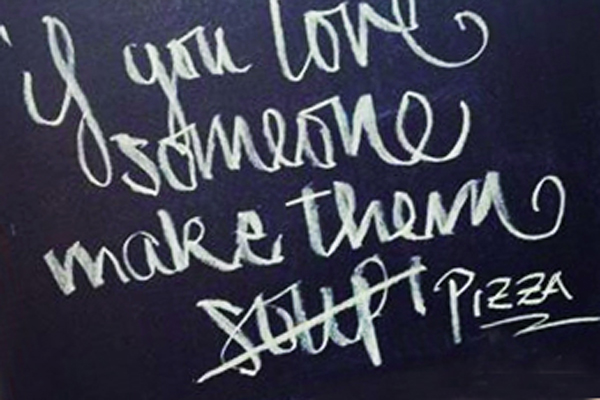 'if you love
someone
make them
soup' PIZZA